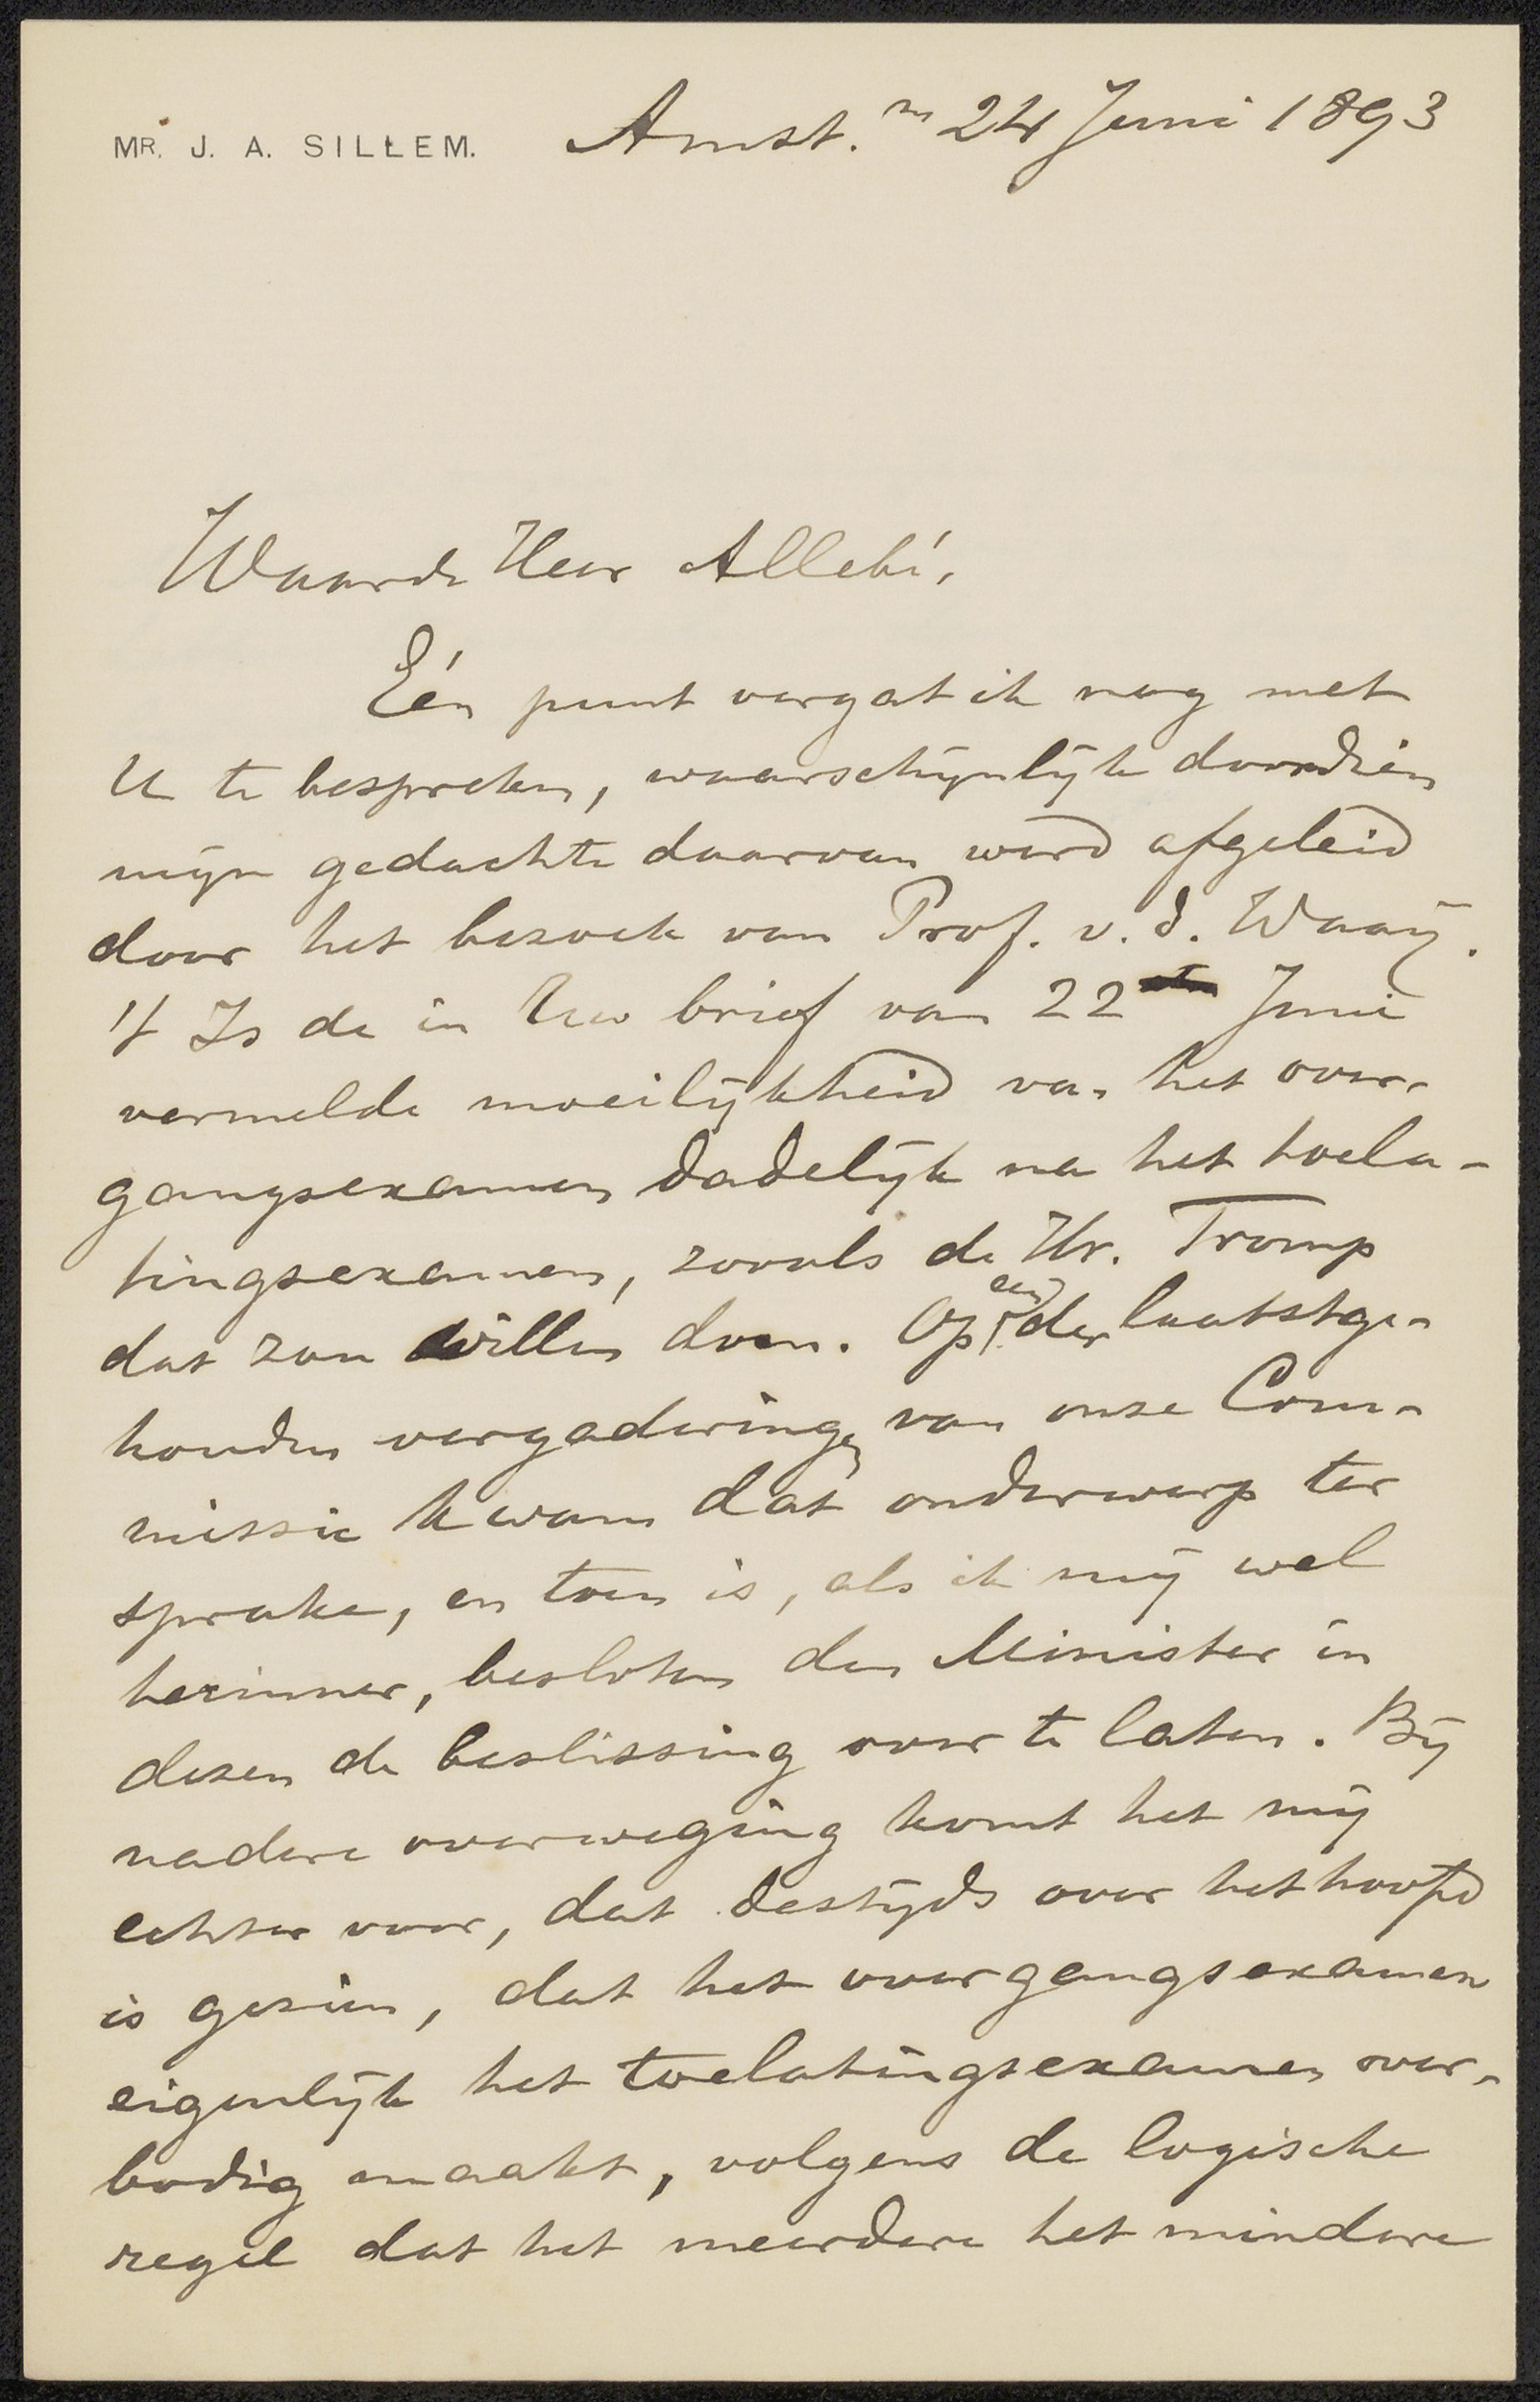 MR. J. A. SILLEM.
Amst.m 24 Juni 1893
Waarde Heer Allebé,
Eén punt vergat ik nog met
U te bespreken, waarschijnlijk doordien
mijn gedachte daarvan werd afgeleid
door het bezoek van Prof. v. d. Waaij.
't Is de in Uw brief van 22 Juni
vermelde moeilijkheid van het over-
gangsexamen dadelijk na het toela-
tingsexamen, zooals de Hr. Tromp
dat zou willen doen. Op een der laatstge-
houden vergaderingen van onze Com-
missie kwam dat onderwerp ter
sprake, en toen is, als ik mij wel
herinner, besloten den Minister in
dezen de beslissing over te laten. Bij
nadere overweging komt het mij
echter voor, dat destijds over het hoofd
is gezien, dat het overgangsexamen
eigenlijk het toelatingsexamen over-
bodig maakt, volgens de logische
regel dat het meerdere het mindere